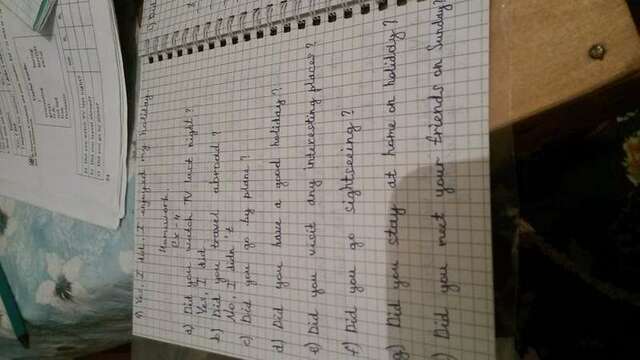 Yes, I did. I enjoyed my holiday.
Homework.
Ex - 4
a) Did you watch TV last night?
Yes, I did
b) Did you travel abroad?
No, I didn't
c) Did you go by plane?
d) Did you have a good holiday?
e) Did you visit any interesting places?
f) Did you go sightseeing?
g) Did you stay at home on holiday?
Did you meet your friends on Sunday?